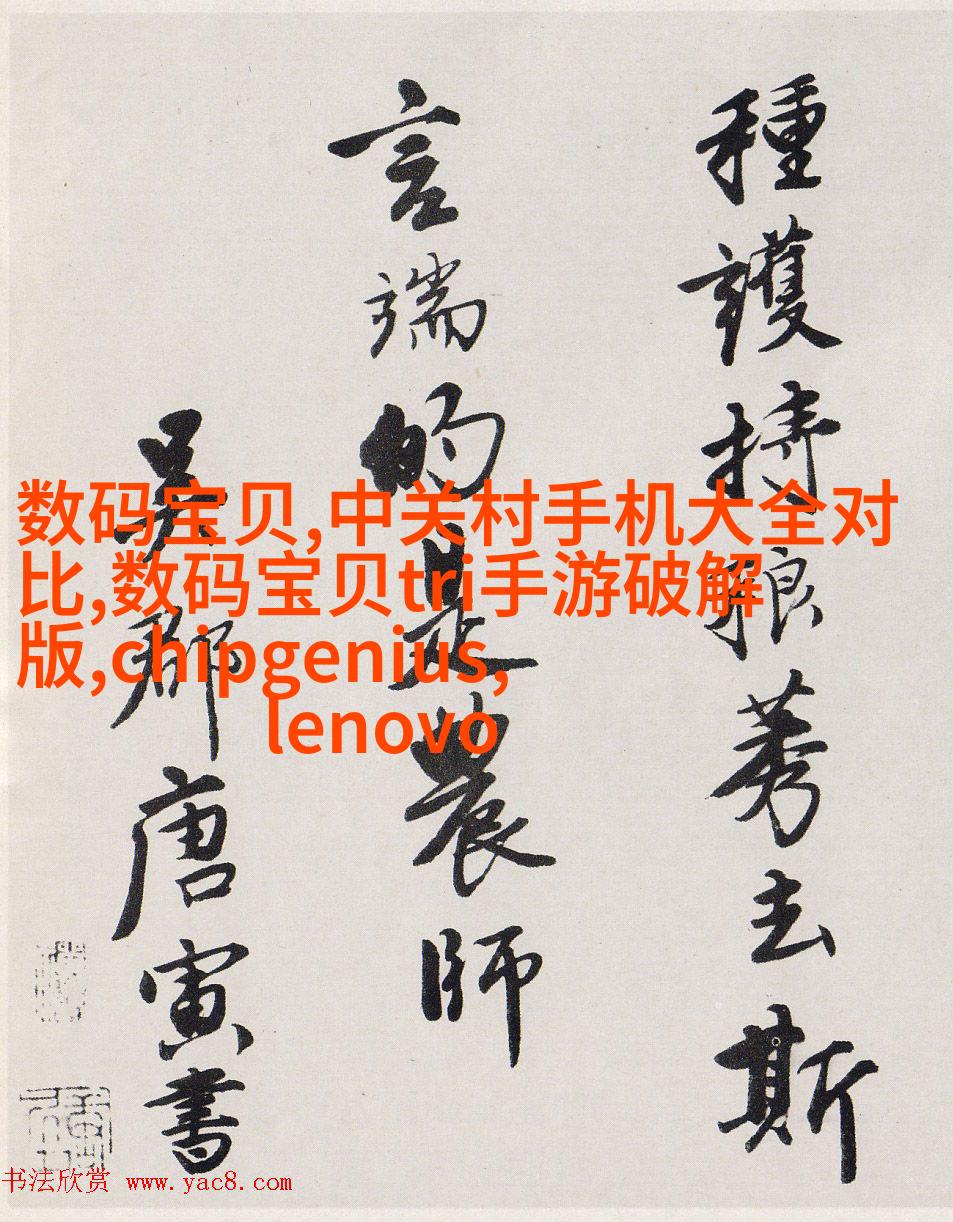 種護持稂莠去斯
言端的是農師
吴郡唐寅書
数码宝贝,中关村手机大全对
比,数码宝贝tri手游破解
版,chipgenius,
lenovo
书法欣赏 www.yac8.com